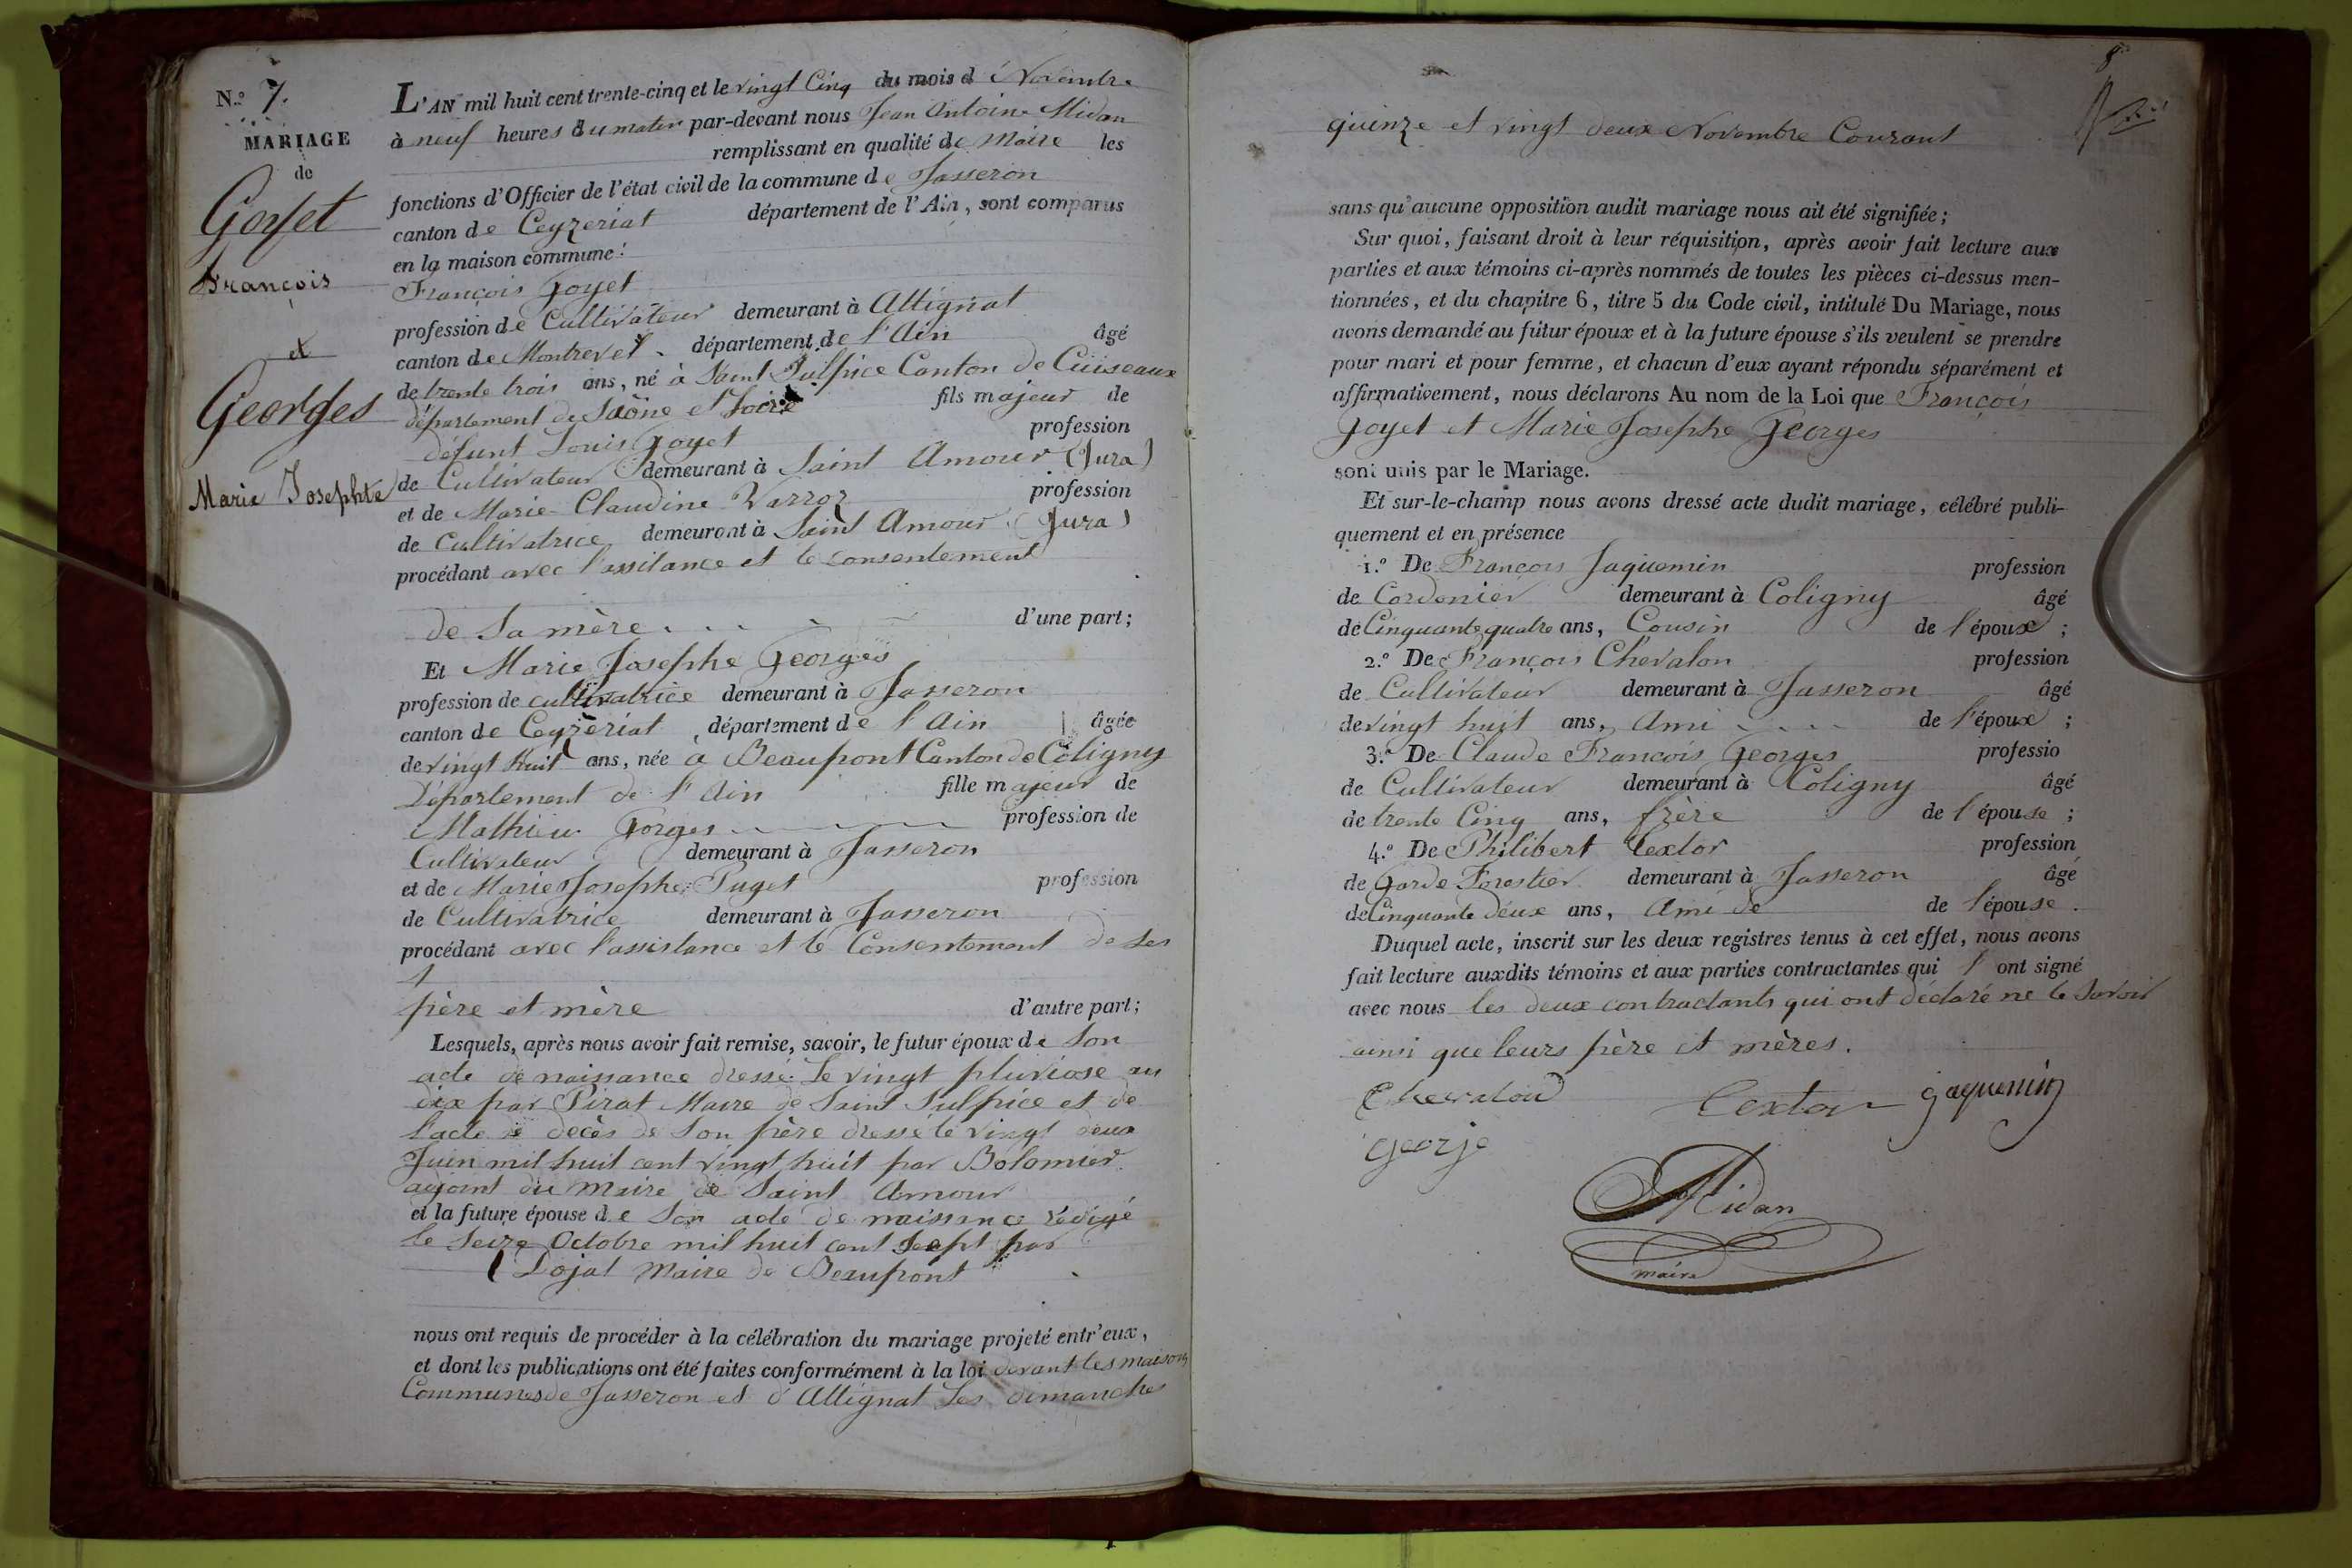 N.º 7.
MARIAGE
de
Goyet
François
et
Georges
Marie Josephte
L'AN mil huit cent trente-cinq et le vingt Cinq du mois d Novembre
à neuf heures du matin par-devant nous Jean Antoine Midan
remplissant en qualité de Maire les
fonctions d'Officier de l'état civil de la commune de Jasseron
canton de Ceyzeriat département de l'Ain, sont comparus
en la maison commune:
François Goyet
profession de Cultivateur demeurant à Attignat
canton de Montrevel département de l'Ain âgé
de trente trois ans, né à Saint Sulpice Canton de Cuiseaux
département de Saône et Loire fils majeur de
défunt Louis Goyet profession
de Cultivateur demeurant à Saint Amour (Jura)
et de Marie Claudine Varroz profession
de Cultivatrice demeurant à Saint Amour (Jura)
procédant avec l'assitance et le consentement
de Sa mère d'une part;
Et Marie Josephe Georges
profession de cultivatrice demeurant à Jasseron
canton de Ceyzeriat département de l'Ain âgée
de vingt huit ans, née à Beaupont Canton de Coligny
Département de l'Ain fille majeur de
Mathieu Gorges profession de
Cultivateur demeurant à Jasseron
et de Marie Josephe Puget profession
de Cultivatrice demeurant à Jasseron
procédant avec l'assistance et le Consentement de Ses
père et mère d'autre part;
Lesquels, après nous avoir fait remise, savoir, le futur époux de Son
acte de naissance dressé le vingt pluviose an
dix par Pirat Maire de Saint Sulpice et de
l'acte de décès de Son père dressé le vingt deux
Juin mil huit cent vingt huit par Bolomier
adjoint du Maire de Saint Amour
et la future épouse de Son acte de naissance rédigé
le Seize Octobre mil huit cent Sept par
Dojat Maire de Beaupont
nous ont requis de procéder à la célébration du mariage projeté entr'eux,
et dont les publications ont été faites conformément à la loi devant les maisons
Communes de Jasseron et d'Attignat Les dimanches
8
quinze et vingt deux Novembre Courant
sans qu'aucune opposition audit mariage nous ait été signifiée;
Sur quoi, faisant droit à leur réquisition, après avoir fait lecture aux
parties et aux témoins ci-après nommés de toutes les pièces ci-dessus men-
tionnées, et du chapitre 6, titre 5 du Code civil, intitulé Du Mariage, nous
avons demandé au futur époux et à la future épouse s'ils veulent se prendre
pour mari et pour femme, et chacun d'eux ayant répondu séparément et
affirmativement, nous déclarons Au nom de la Loi que François
Goyet et Marie Josephe Georges
sont unis par le Mariage.
Et sur-le-champ nous avons dressé acte dudit mariage, célébré publi-
quement et en présence
1.º De François Jaquemin profession
de Cordonier demeurant à Coligny âgé
de Cinquante quatre ans, Cousin de l'époux;
2.º De François Chevalon profession
de Cultivateur demeurant à Jasseron âgé
de vingt huit ans, Ami de l'époux;
3.º De Claude François Georges professio
de Cultivateur demeurant à Coligny âgé
de trente Cinq ans, frère de l'épouse;
4.º De Philibert Textor profession
de Garde Forestier demeurant à Jasseron âgé
de Cinquante deux ans, Ami de de l'épouse.
Duquel acte, inscrit sur les deux registres tenus à cet effet, nous avons
fait lecture auxdits témoins et aux parties contractantes qui l'ont signé
avec nous les deux contractants qui ont déclaré ne le Savoir
ainsi que leurs père et mères.
Chevalon Textor jaquemin
george
Midan
maire